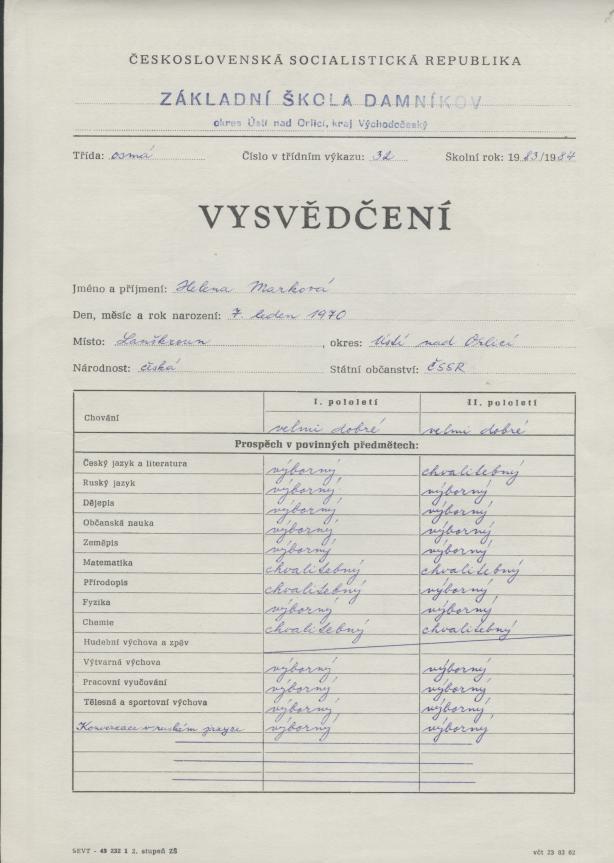 ČESKOSLOVENSKÁ SOCIALISTICKÁ REPUBLIKA
ZÁKLADNÍ ŠKOLA DAMNÍKOV
okres Ústí nad Orlicí, kraj Východočeský
Třída: osmá Číslo v třídním výkazu: 32 Školní rok: 1983/1984
VYSVĚDČENÍ
Jméno a příjmení: Helena Marková
Den, měsíc a rok narození: 7. leden 1970
Místo: Lanškroun, okres: Ústí nad Orlicí
Národnost: česká Státní občanství: ČSSR
Chování I. pololetí II. pololetí
velmi dobré velmi dobré
Prospěch v povinných předmětech:
Český jazyk a literatura výborný chvalitebný
Ruský jazyk výborný výborný
Dějepis výborný výborný
Občanská nauka výborný výborný
Zeměpis výborný výborný
Matematika chvalitebný chvalitebný
Přírodopis chvalitebný výborný
Fyzika výborný výborný
Chemie chvalitebný chvalitebný
Hudební výchova a zpěv
Výtvarná výchova výborný výborný
Pracovní vyučování výborný výborný
Tělesná a sportovní výchova výborný výborný
Konverzace v ruském jazyce výborný výborný
SEVT - 49 232 1 2. stupeň ZŠ včt 23 83 82